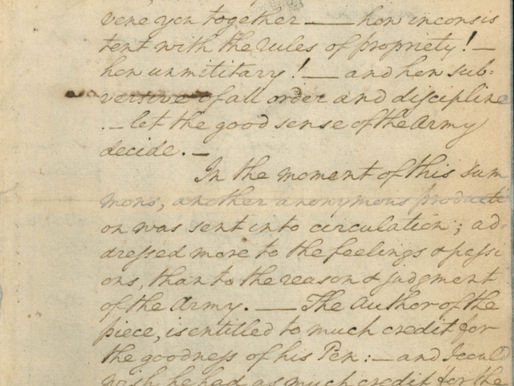 vene you together —— how inconsis
tent with the rules of propriety! —
how unmilitary! — and how sub-
versive of all order and discipline
. – let the good sense of the Army
decide. –
In the moment of this Sum
mons, another anonymous producti
on was sent into circulation; ad-
dressed more to the feelings & passi
ons, than to the reason & judgment
of the Army. —— The Author of the
piece, is entitled to much credit for
the goodness of his Pen: – and I could
wish he had as much credit for the